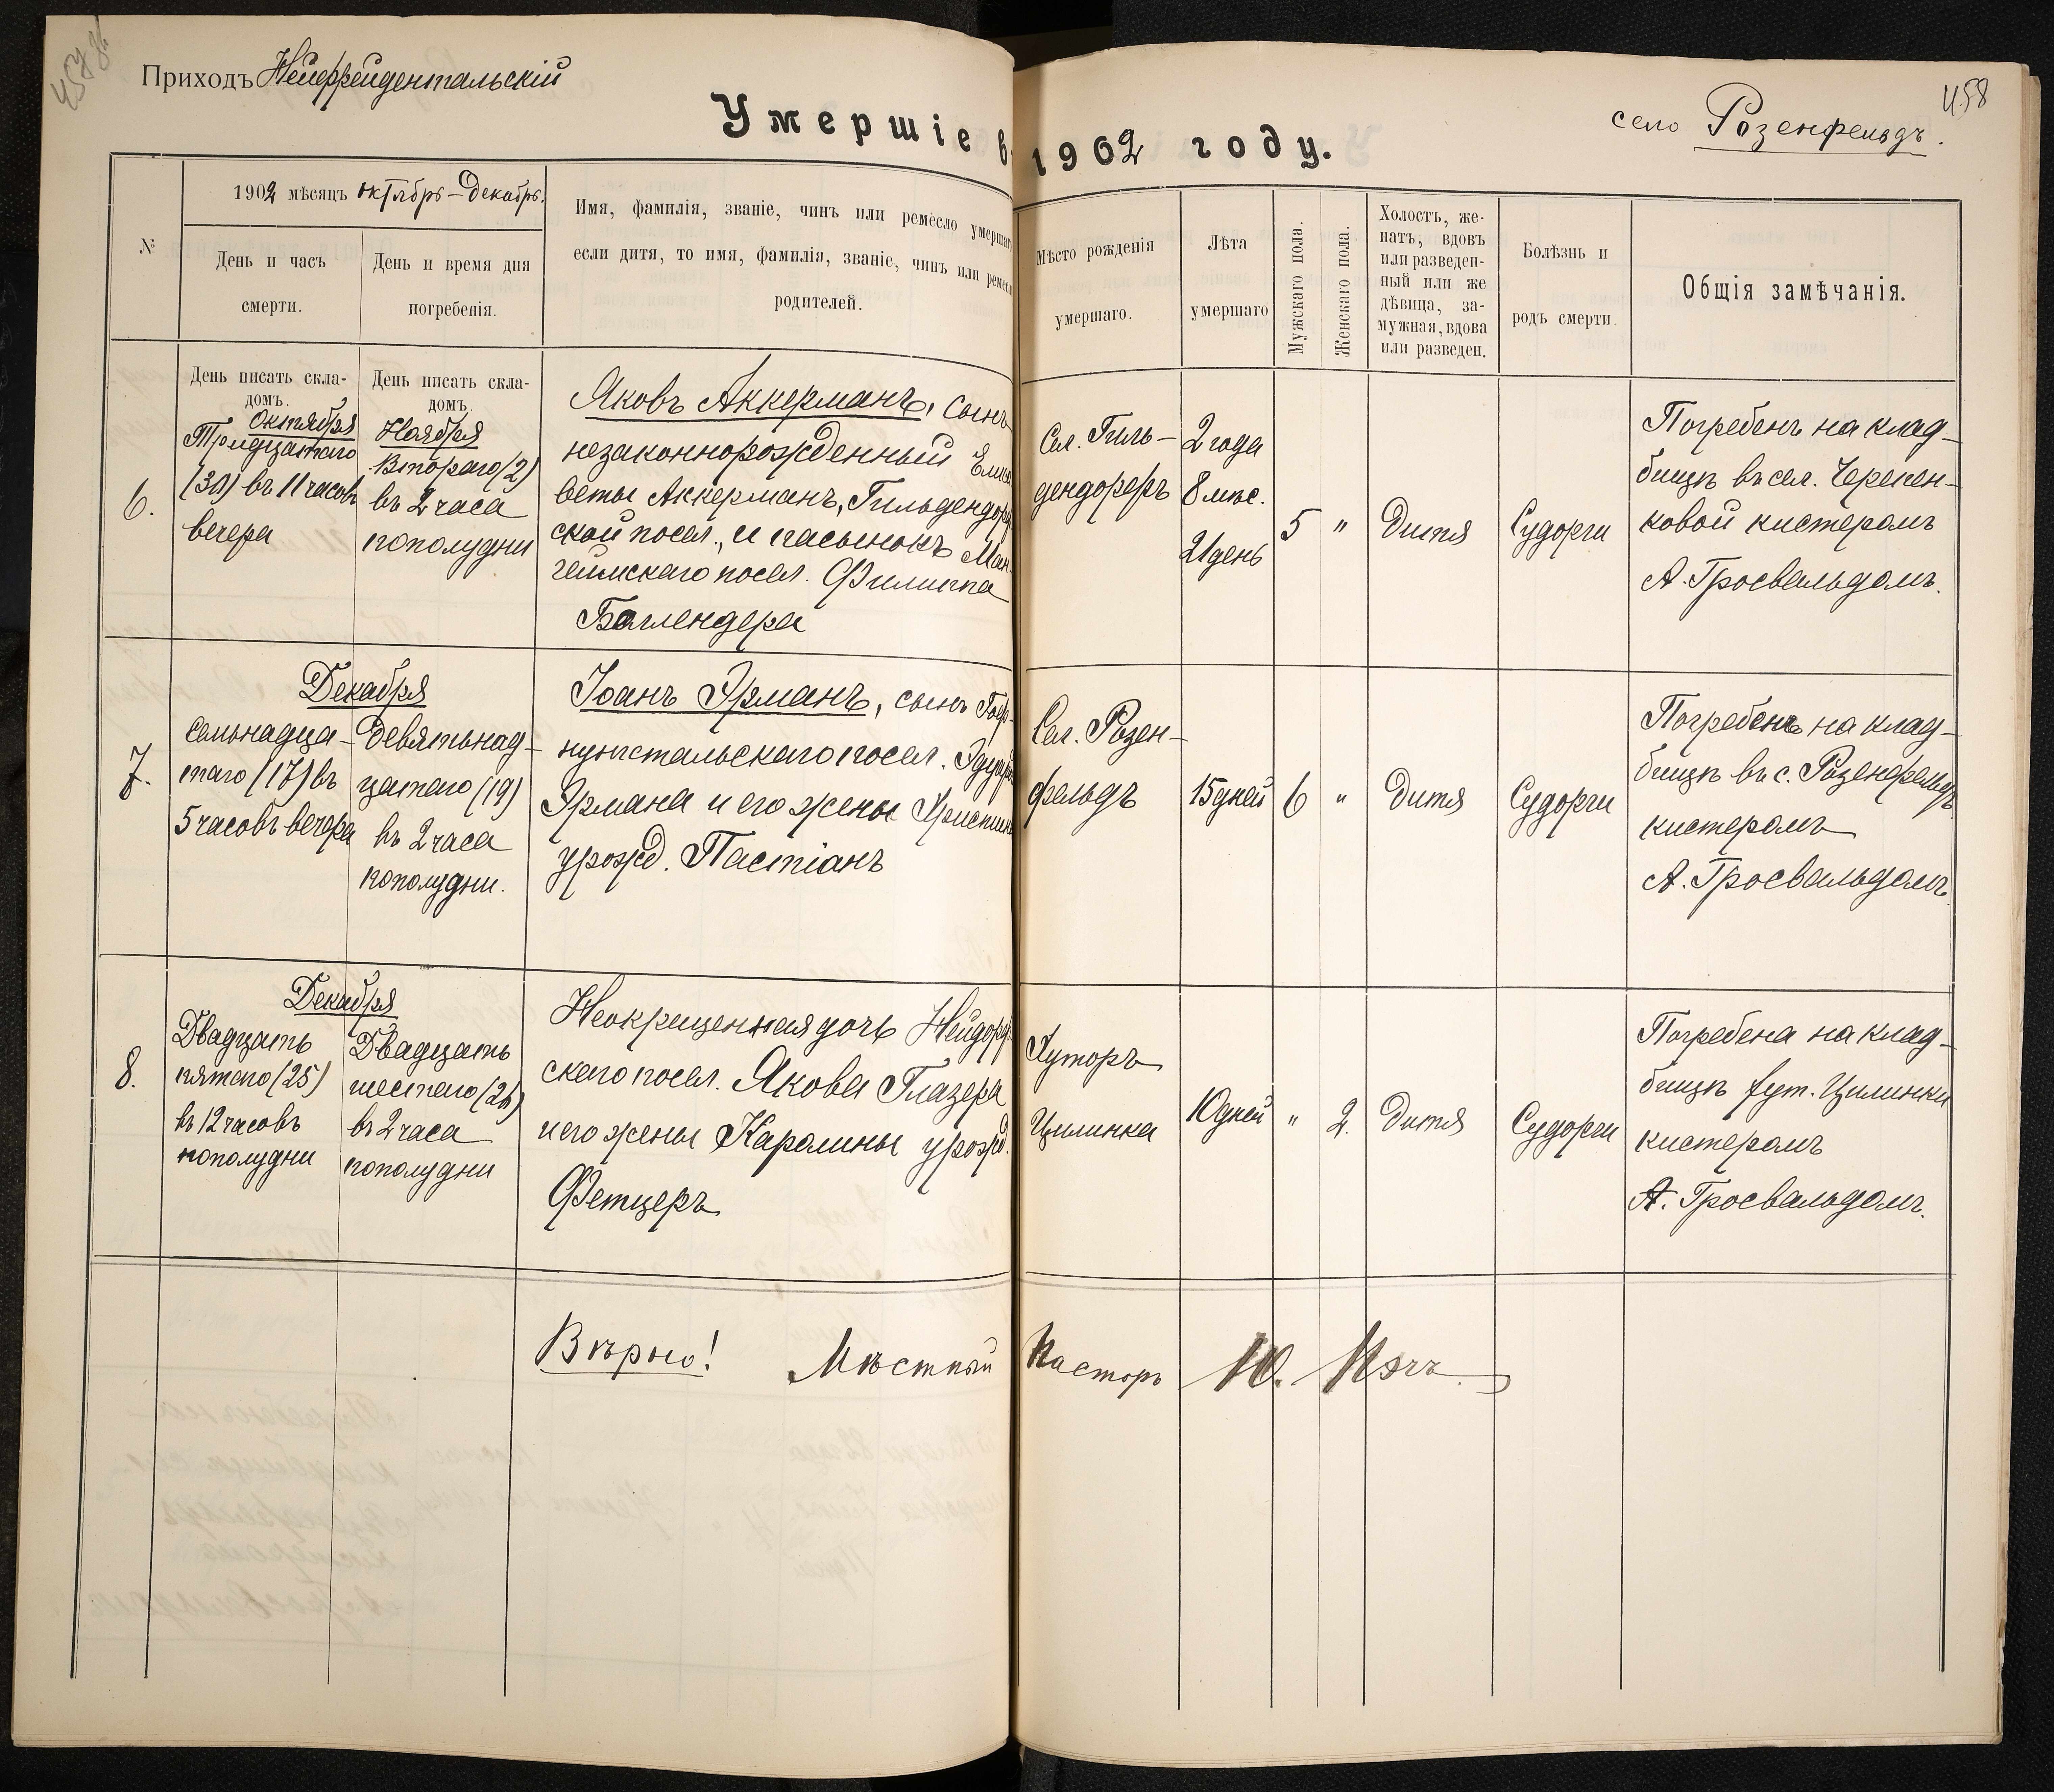 Приходъ Нейфрейдентальскій
458
село Розенфельдъ.
Умершіе в 1902 году.
№
1902 мѣсяцъ октябрь–декабрь.
День и часъ
смерти.
День и время дня
погребенія.
Имя, фамилія, званіе, чинъ или ремесло умершаг
если дитя, то имя, фамилія, званіе, чинъ или ремес
родителей.
Мѣсто рожденія
умершаго.
Лѣта
умершаго
Мужскаго пола.
Женскаго пола.
Холостъ, же-
натъ, вдовъ
или разведен-
ный или же
дѣвица, за-
мужная, вдова
или разведен.
Болѣзнь и
родъ смерти.
Общія замѣчанія.
6.
День писать скла-
домъ.
Октября
Тридцатаго
(30) въ 11 часовъ
вечера
День писать скла-
домъ.
Ноября
Втораго (2)
въ 2 часа
пополудни
Яковъ Аккерманъ, сынъ
незаконнорожденный Елиса
веты Аккерманъ, Гильдендорф
ской посел., и пасынокъ Ман
геймскаго посел. Филиппа
Баллендера
Сел. Гиль-
дендорфъ
2 года
8 мѣс.
21 день
5
"
Дитя
Судорги
Погребенъ на клад-
бищѣ въ сел. Черепен-
ковой кистеромъ
А. Гросвальдомъ.
7.
Декабря
Семьнадца-
таго (17) въ
5 часовъ вечера
Девятьнад-
цатаго (19)
въ 2 часа
пополудни.
Іоанъ Эрманъ, сынъ
нунгстальскаго посел. Эдуар
Эрмана и его жены Христин
урожд. Пастіанъ
Сел. Розен-
фельдъ
15 дней
6
"
Дитя
Судорги
Погребенъ на клад-
бищѣ въ с. Розенфельдъ
кистеромъ
А. Гросвальдомъ.
8.
Декабря
Двадцать
пятаго (25)
въ 12 часовъ
пополудни
Двадцать
шестаго (26)
въ 2 часа
пополудни
Неокрещенная дочь Нейдорф
скаго посел. Якова Глазера
и его жены Каролины урожд.
Фетцеръ
Хуторъ
Цилинка
10 дней
"
2.
Дитя
Судорги
Погребена на клад-
бищѣ хут. Цилинки
кистеромъ
А. Гросвальдомъ.
Вѣрно! Мѣстный Пасторъ